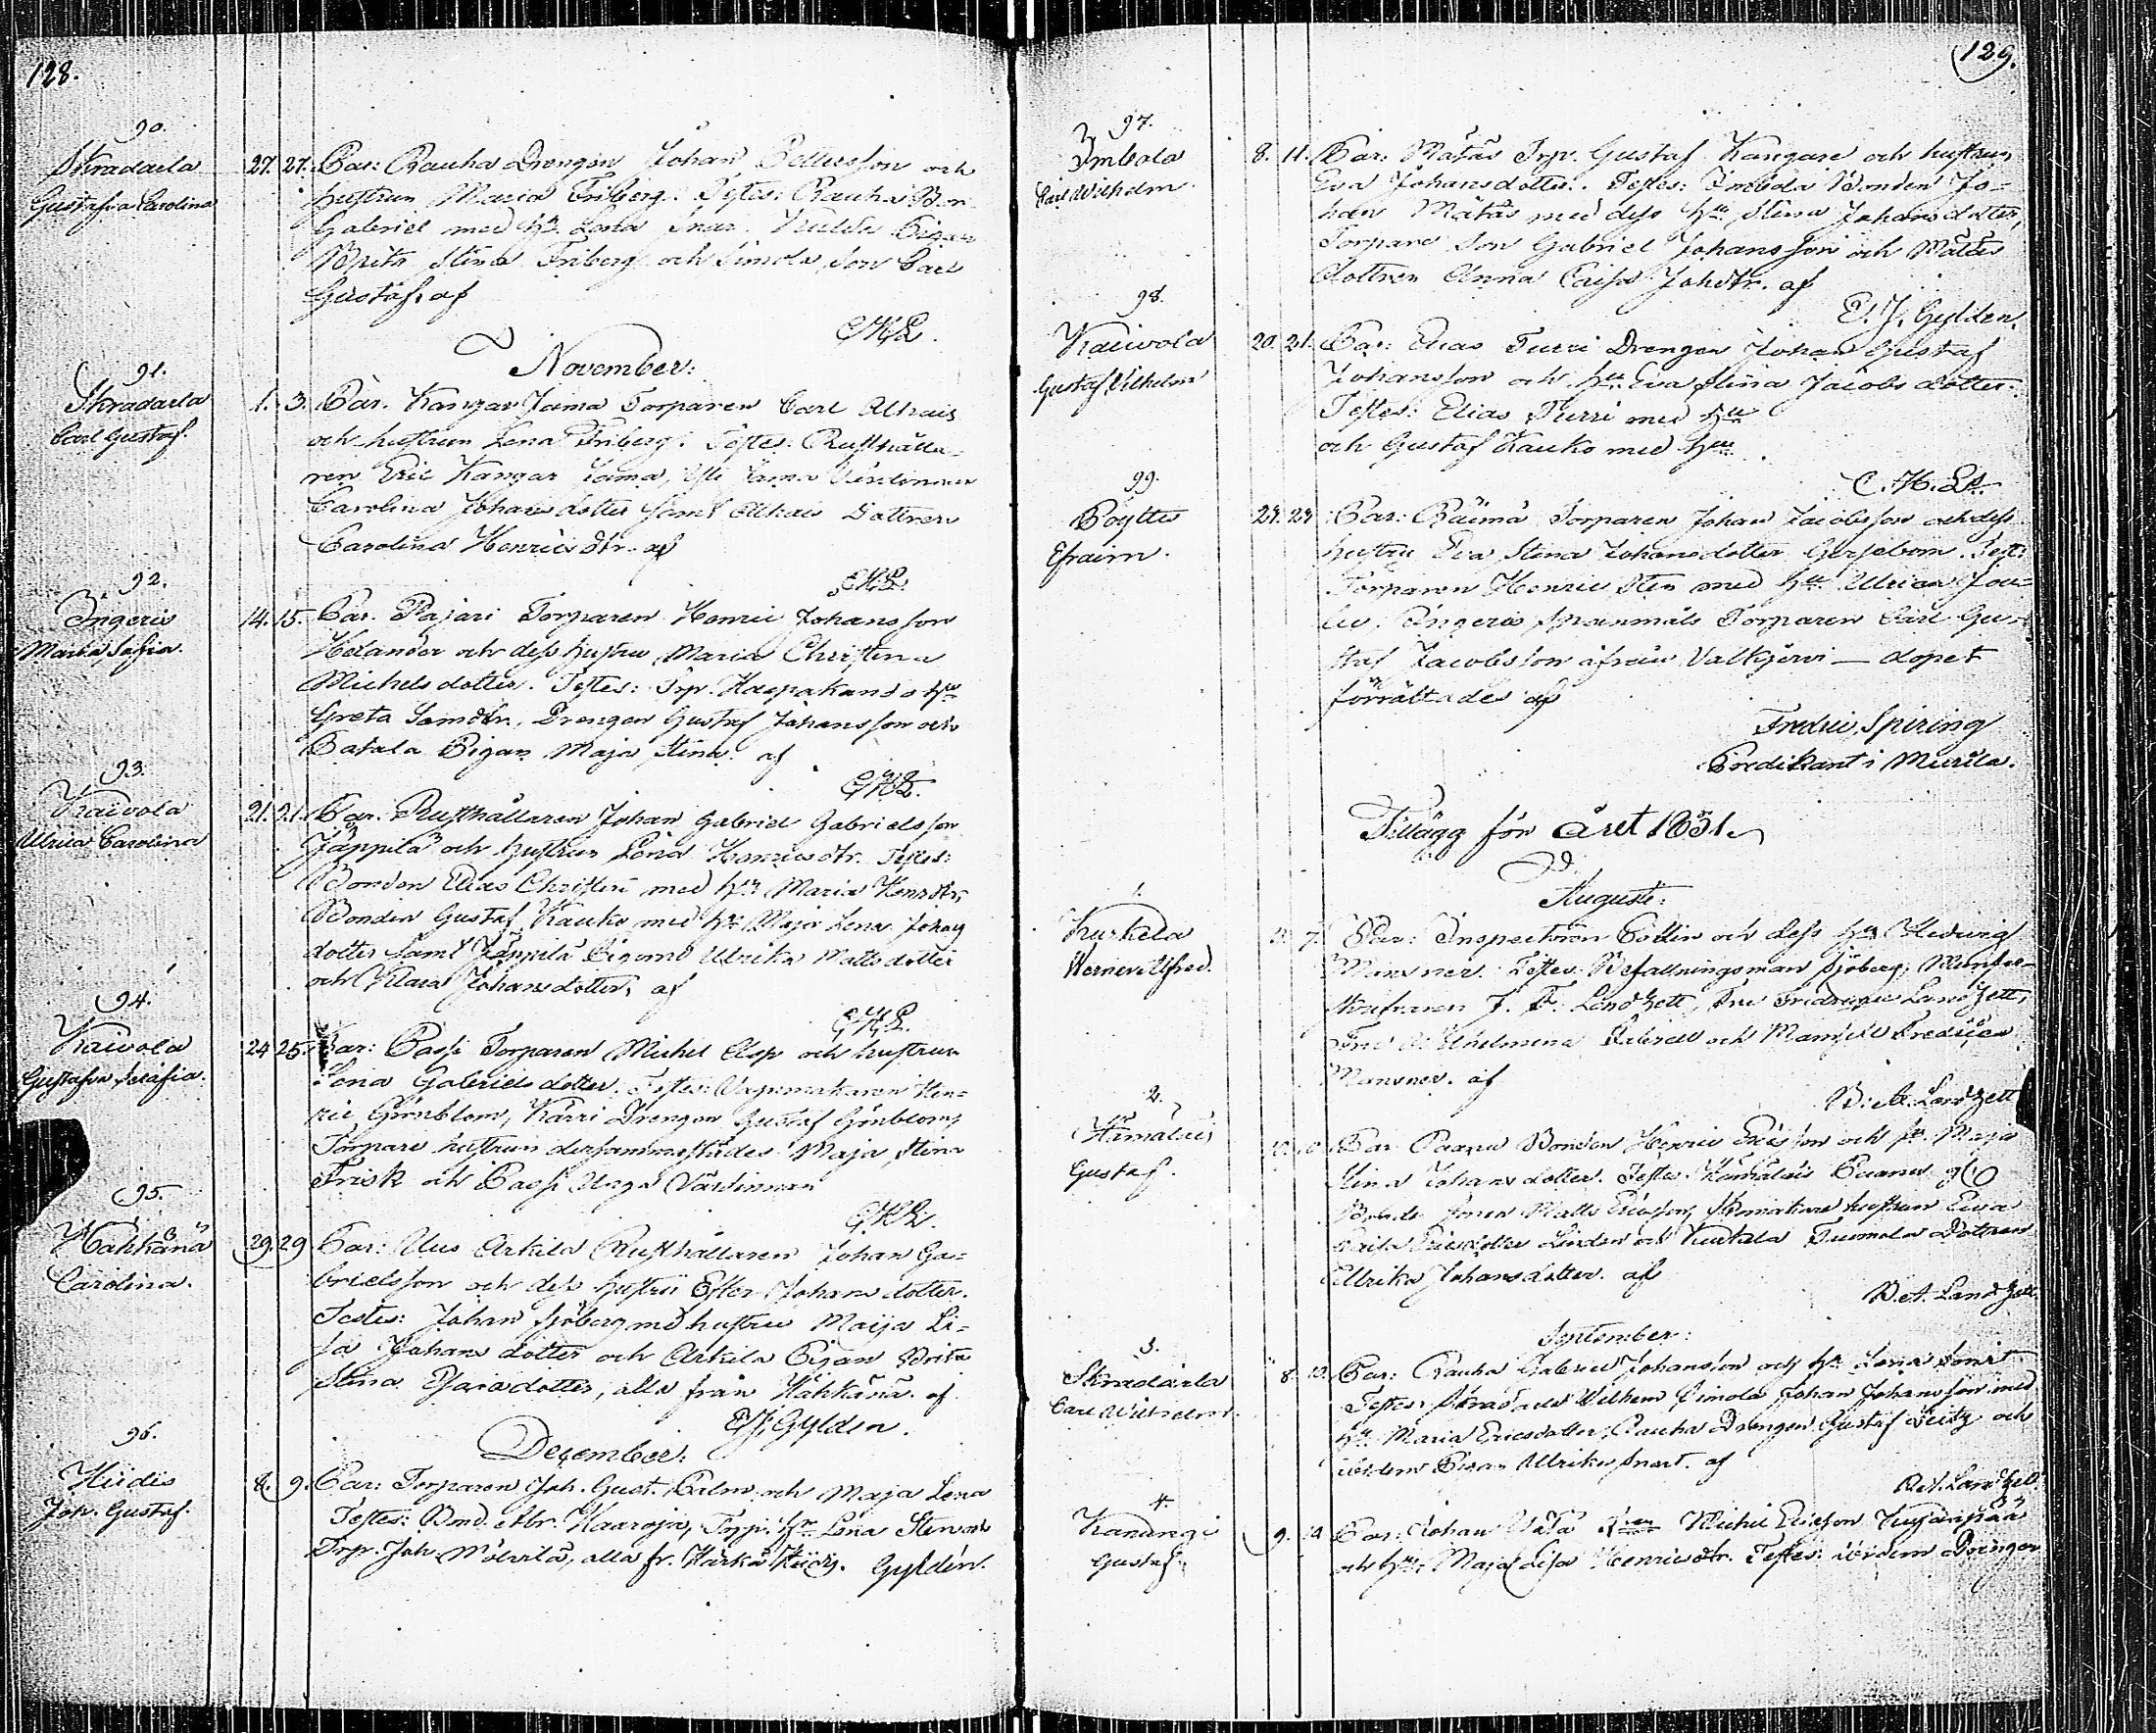 128.
90.
Skradarla
Gustafva Carolina
27. 27. Par: Rauha Drengen Johan Pettersson och
hustrun Maria Friberg. Testes: Rauha Bon.
Gabriel med h:u Lena Snar. Pigan
Brita Stina Friberg och Simola Son Carl
Gustaf, af
CHL.
November:
91.
Skradarla
Carl Gustaf.
1. 3. Par. Kangar Jama Torparen Carl Alhais
och hustrun Lena Friberg. Testes: Rusthålla-
ren Eric Kangar Jama, Värdinnan
Carolina Johansdotter samt Alhais Dottren
Carolina Henricsdtr. af
CHL.
92.
Ingeris
Maria Sofia.
14. 15. Par. Pajari Torparen Henric Johansson
Helander och dess hustru Maria Christina
Michelsdotter. Testes: Trp. Haapakands h:u
Greta Simdtr. Drengen Gustaf Johansson och
Batala Pigan Maja Stina. af
CHL.
93.
Kaivola
Ulrica Carolina
21. 21. Par. Rusthållaren Johan Gabriel Gabrielsson
Jäppilä och hustrun Lena Henricsdtr. Testes:
Bonden Elias Christeri med h:u Maria Henrdtr,
Bonden Gustaf Kauko med h:u Maja Lena Johans
dotter samt Jäppilä Pigorna Ulrika Mattsdotter
och Clara Johansdotter, af
CHL.
94.
Kaivola
Gustafva Serafia.
24 25. Par: Passi Torparen Michel Alop och hustrun
Lena Gabrielsdotter. Testes: Vagnmakaren Hen-
ric Grönblom, Karri Drengen Gustaf Grönblom,
Torpare hustrun dersammastädes Maja Stina
Frisk och Passi Unga Värdinnan
CHL.
95.
Hahkana
Carolina.
29. 29 Par: Uus Arkila Rusthållaren Johan Ga-
brielsson och dess hustru Ester Johansdotter.
Testes: Johan Sjöberg md hustru Maija Li-
sa Johansdotter och Arkila Pigan Brita
Stina Esaiadotter, alla från Hahkana. af
E.J. Gylden.
December:
96.
Hiidis
Joh. Gustaf.
8. 9. Par: Torparen Joh. Gust. Palm och Maja Lena
Testes: Bond. Abr. Kaaroja, Trp. h:u Lena Sten och
Trp. Joh. Mölvilä, alla fr. Härkä Hiidis. Gyldén.
129.
97.
Imbola
Carl Wilhelm.
8. 11. Par: Mätäs Trp. Gustaf Kangare och hustrun
Eva Johansdotter. Testes: Imbola Bonden Jo-
han Mätäs med dess h:u Stina Johansdotter,
Torpare Son Gabriel Johansson och Mätäs
dottren Anna Caisa Johdtr. af
E.J. Gylden.
98.
Kaivola
Gustaf Vilhelm
20. 21. Par: Elias Turri Drengen Johan Gustaf
Johansson och h:u Eva Stina Jacobsdotter.
Testes: Elias Turri med h:u
och Gustaf Kauko med h:u
C.H.Ln.
99.
Pöytis
Efraim.
Par: Räimä Torparen Johan Jacobsson och dess
hustru Eva Stina Johansdotter Test:
Torparen Henric Sten med h:u Ulrica
Ingeris Torparen Carl Gu-
staf Jacobsson ifrån Valkjervi — dopet
förrättades af
Fredric Spiring
Predikant i Murila.
Tillägg för året 1831.
Augusti:
1.
Kurkela
Werner Alfred.
7. Par: Inspectoren Collin och dess h:u Hedvig
Mansner. Testes: Befallningsman Sjöberg,
J. F. Landzett, Fru Fredrique Landzett,
Fru Wilhelmina och Mamsell Fredrica
Mansner. af
B. A. Landzett
2.
Hämäläis
Gustaf.
Par: Paavu Bonden Henric Ericsson och h:u Maja
Stina Johansdotter. Testes: Hämäläis Paavu
Matts Ericsson, Skomakare hustrun Eva
Caisa Ericsdotter Linden och Kurkela Tuomola Dottren
Ulrika Johansdotter. af
B.A. Landzett.
September:
3.
Skradarla
Carl Wilhelm.
8. 10. Par: Rauha Gabriel Johansson och h:u Lena Snart.
Testes: Skradarla Wilhem Simola Johan Johansson med
h:u Maria Ericsdotter, Rauha Drengen Gustaf och
ibidem Pigan Ulrika Snart. af
B.A. Landzell.
4.
Kanungi
Gustaf.
9. Par: Johan Michel Ericson
och h:u Maja Lisa Henricsdtr. Testes: ibidem Drengen